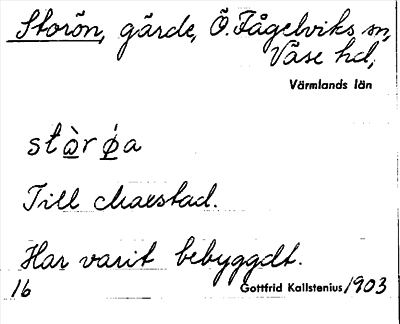 Storön, gärde, Ö. Fågelviks sn,
Väse hd,
Värmlands län
stὼr ǿa
Till
Har varit bebyggdt.
16 Gottfrid Kallstenius 1903